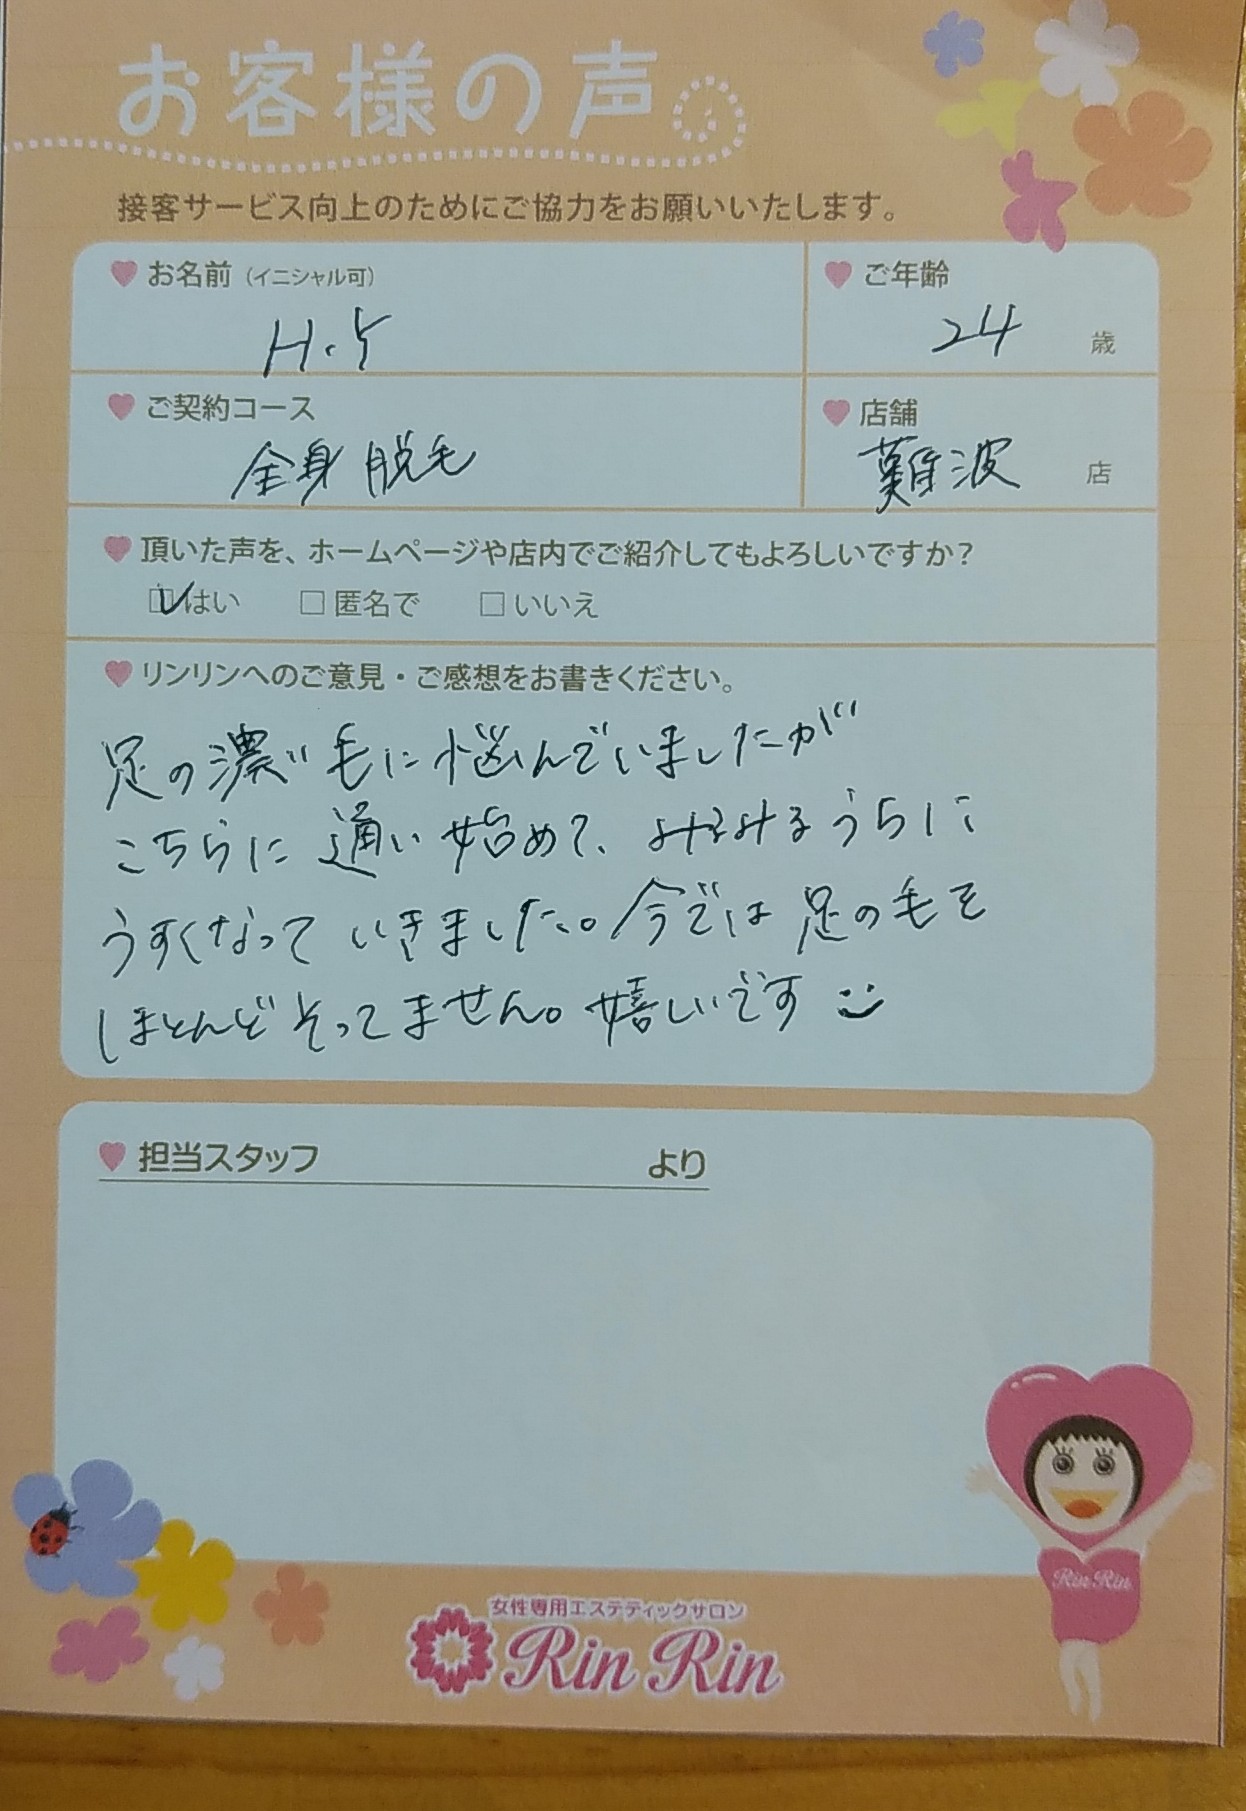 お客様の声
接客サービス向上のためにご協力をお願いいたします。
お名前（イニシャル可）
H.Y
ご年齢
24 歳
ご契約コース
全身脱毛
店舗
難波 店
頂いた声を、ホームページや店内でご紹介してもよろしいですか？
はい 匿名で いいえ
リンリンへのご意見・ご感想をお書きください。
足の濃い毛に悩んでいましたが
こちらに通い始めて、みるみるうちに
うすくなっていきました。今では足の毛を
ほとんどそってません。嬉しいです
担当スタッフ より
Rin Rin
女性専用エステティックサロン
Rin Rin